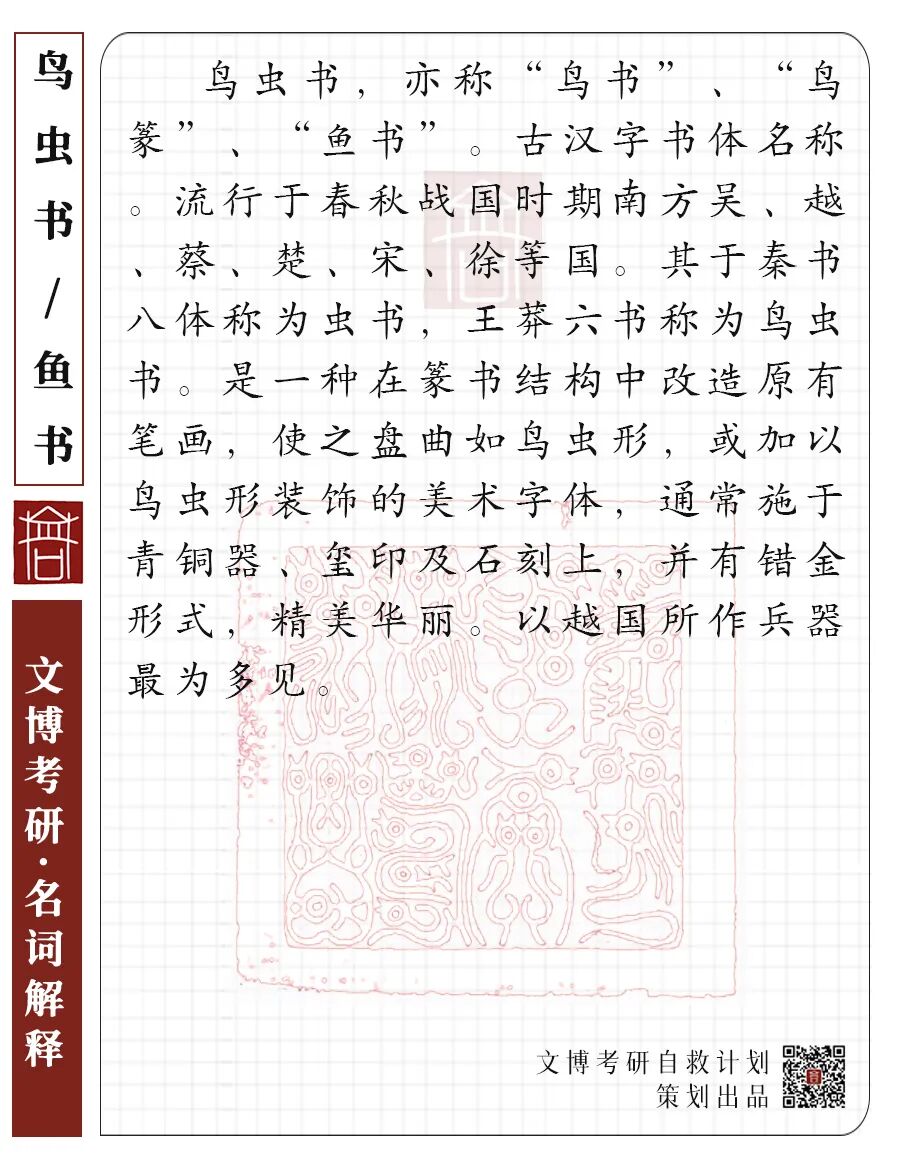 鸟虫书/鱼书
文博考研·名词解释
鸟虫书，亦称“鸟书”、“鸟
篆”、“鱼书”。古汉字书体名称
。流行于春秋战国时期南方吴、越
、蔡、楚、宋、徐等国。其于秦书
八体称为虫书，王莽六书称为鸟虫
书。是一种在篆书结构中改造原有
笔画，使之盘曲如鸟虫形，或加以
鸟虫形装饰的美术字体，通常施于
青铜器、玺印及石刻上，并有错金
形式，精美华丽。以越国所作兵器
最为多见。
文博考研自救计划
策划出品